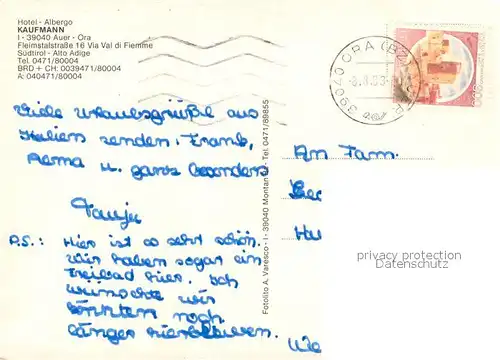 Hotel - Albergo
KAUFMANN
I - 39040 Auer - Ora
Fleimstalstraße 16 Via Val di Fiemme
Südtirol - Alto Adige
Tel. 0471/80004
BRD + CH: 0039471/80004
A: 040471/80004
39040 ORA (BZ)
Viele Urlaubsgrüße aus
Italien senden: Frank,
u. ganz besonders
Tanja
P.S.: Hier ist es sehr schön.
Wir haben sogar ein
Freibad hier. Ich
wünschte wir
könnten noch
länger hierbleiben.
Fotolito A. Varesco - I - 39040 Montan - Tel. 0471/89855
An Fam.
privacy protection
Datenschutz